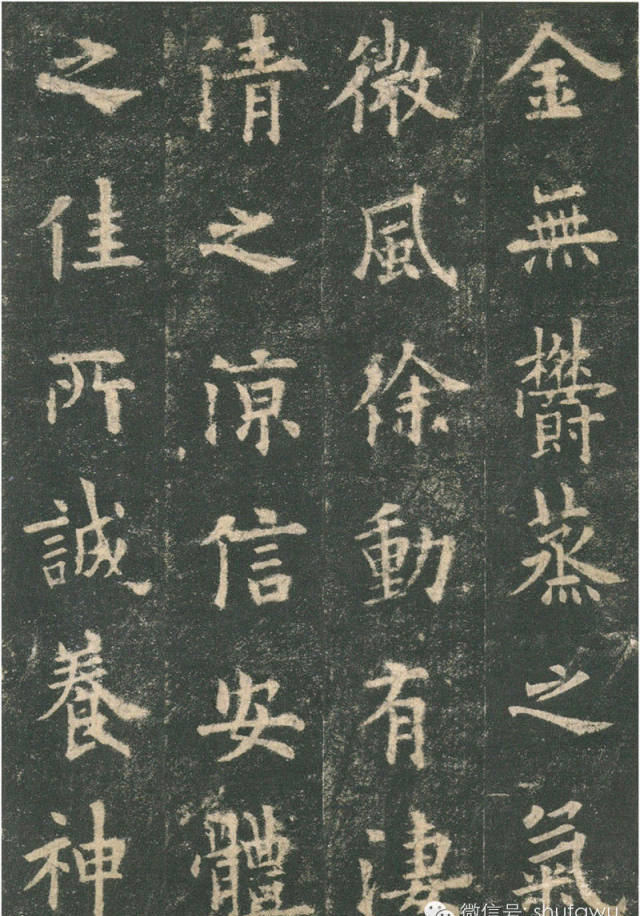 金無欝蒸之氣
微風徐動有淒
清之涼信安體
之佳所誠養神
微信号: shufawu